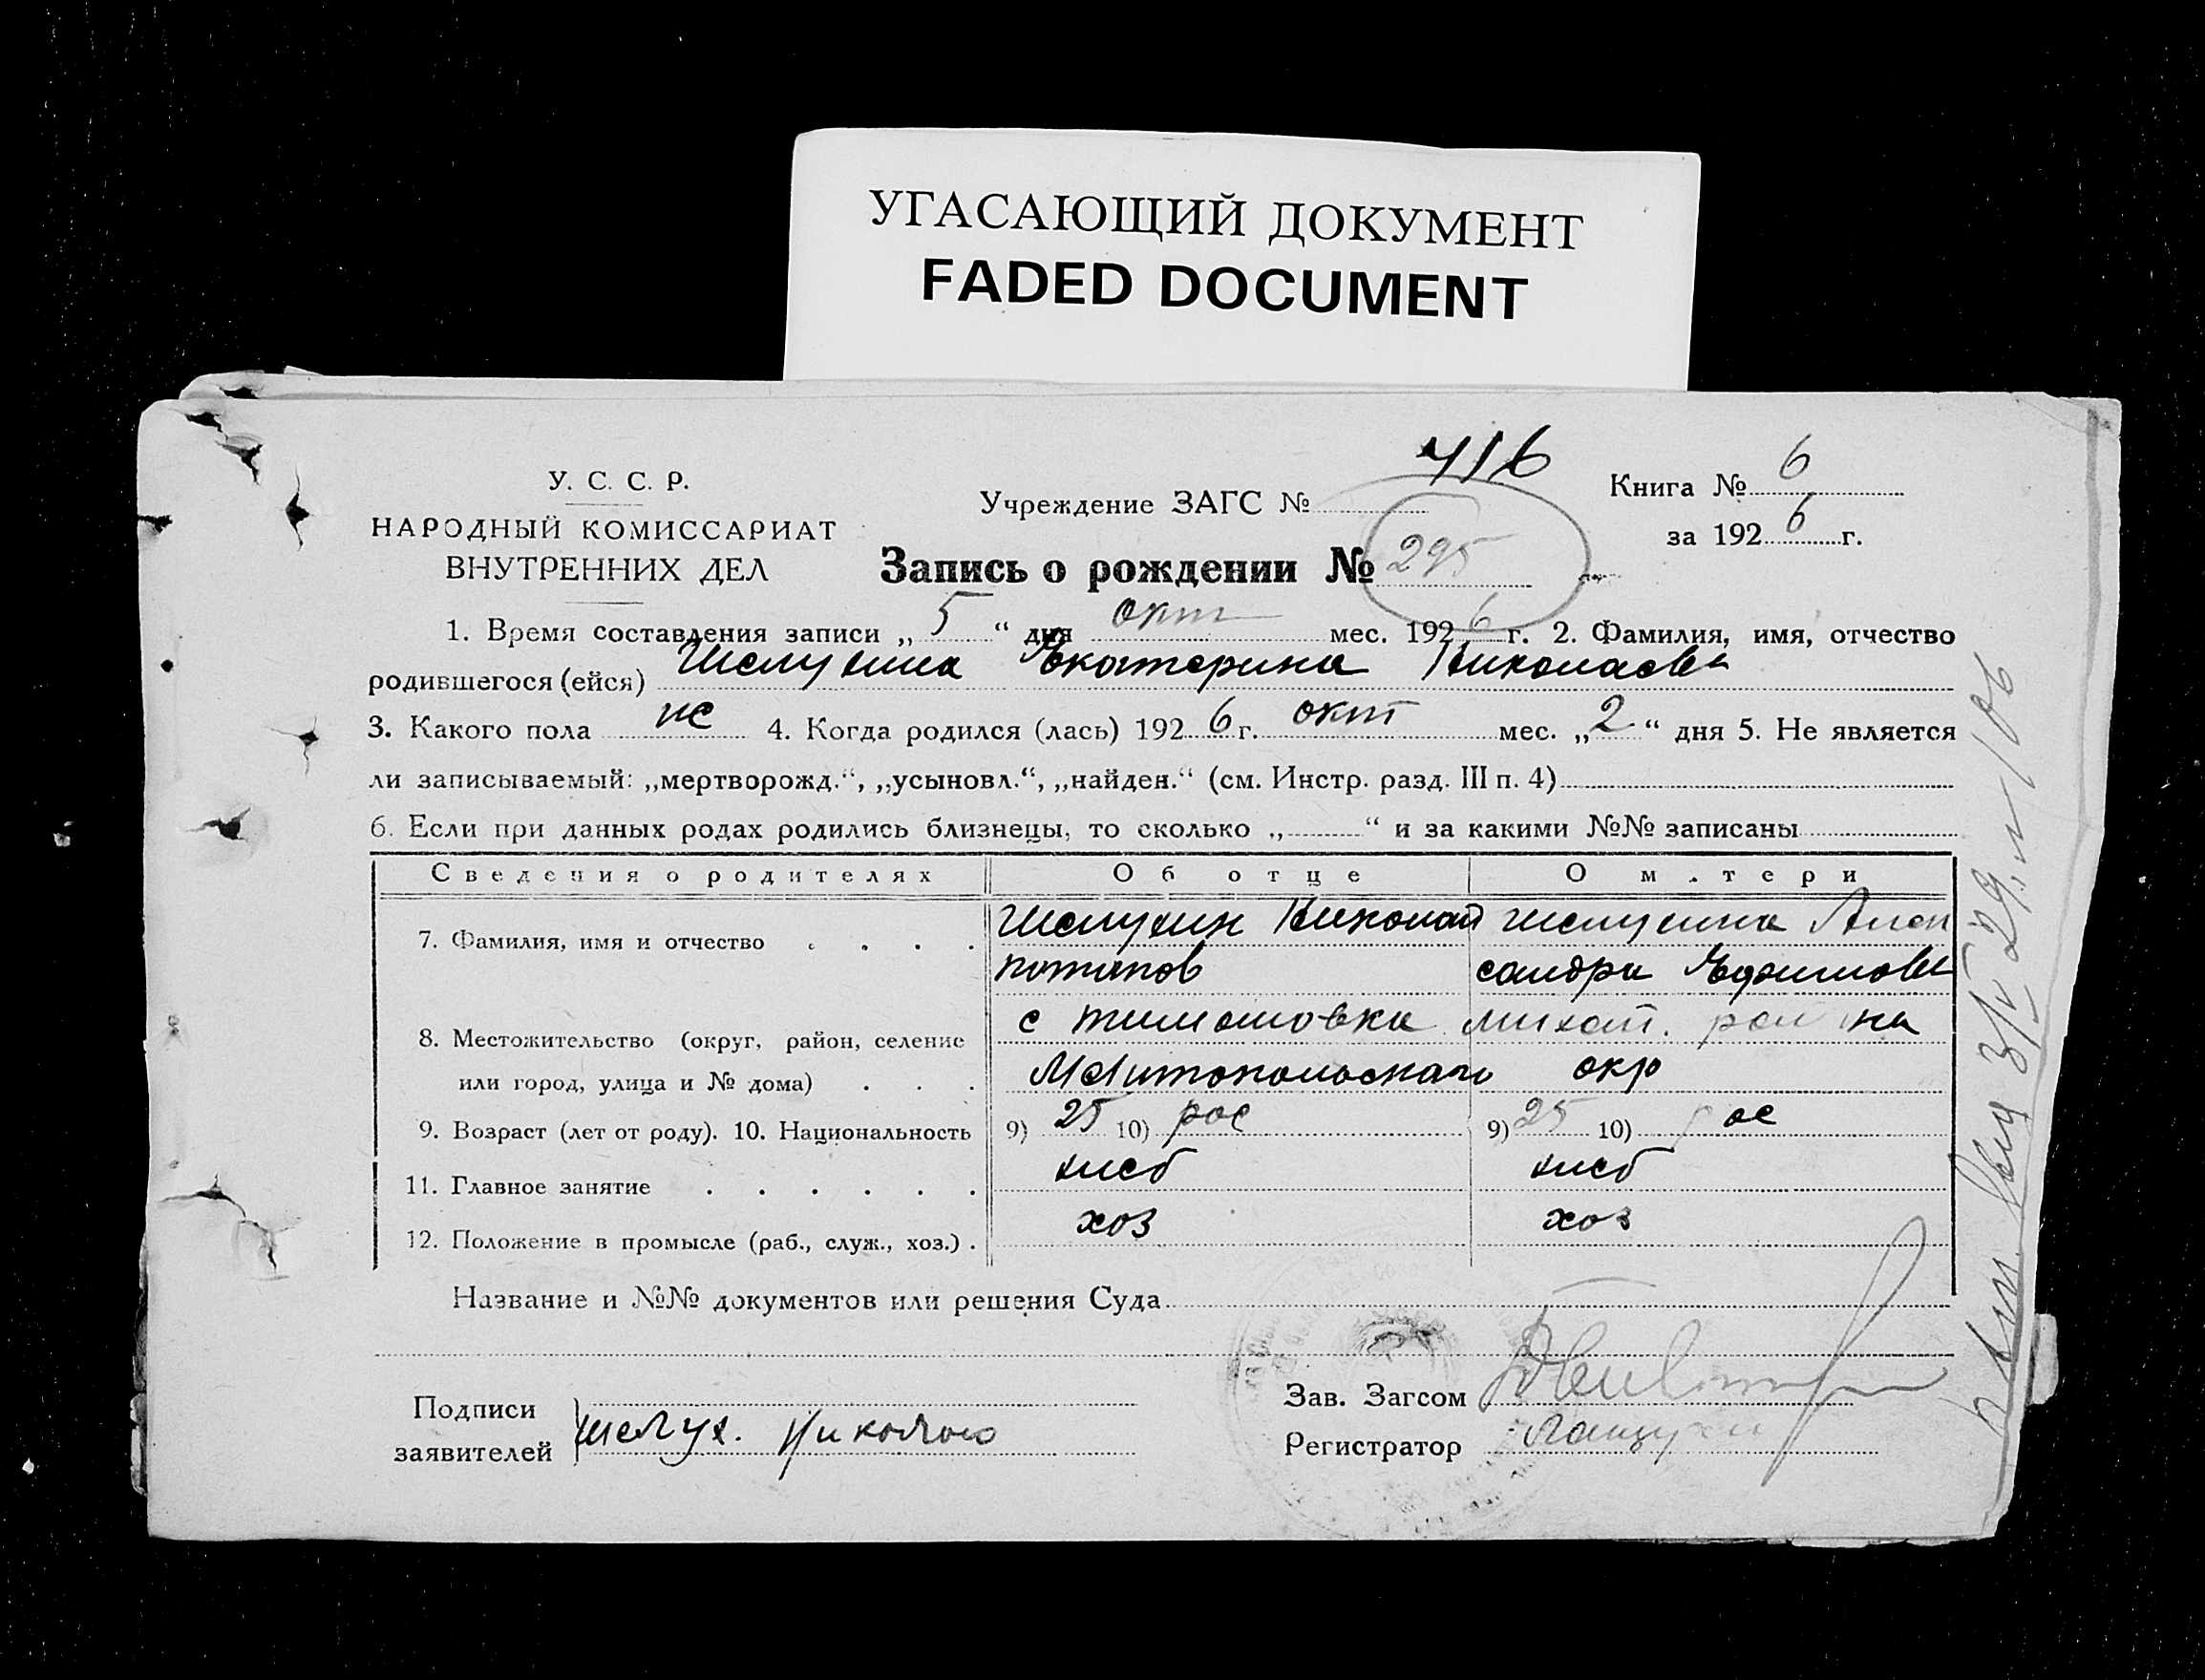 УГАСАЮЩИЙ ДОКУМЕНТ
FADED DOCUMENT
716
У. С. С. Р.
НАРОДНЫЙ КОМИССАРИАТ
ВНУТРЕННИХ ДЕЛ
Учреждение ЗАГС №
Книга № 6
за 1926 г.
Запись о рождении № 295
1. Время составления записи „5“ дня окт мес. 1926 г. 2. Фамилия, имя, отчество
родившегося (ейся) Шелухина Екатерина Николаевн
3. Какого пола же 4. Когда родился (лась) 1926 г. окт мес. „2“ дня 5. Не является
ли записываемый: „мертворожд.“, „усыновл.“, „найден.“ (см. Инстр. разд. III п. 4)
6. Если при данных родах родились близнецы, то сколько „ “ и за какими №№ записаны
Сведения о родителях Об отце О матери
7. Фамилия, имя и отчество Шелухин Николай Шелухина Алек
потапов сандра Ефимовн
8. Местожительство (округ, район, селение с тимошовка михай. района
или город, улица и № дома) Мелитопольского окр
9. Возраст (лет от роду). 10. Национальность 9) 25 10) рос 9) 25 10) рос
11. Главное занятие хлеб хлеб
12. Положение в промысле (раб., служ., хоз.) хоз хоз
Название и №№ документов или решения Суда
Подписи
заявителей Шелух. Николаю
Зав. Загсом
Регистратор